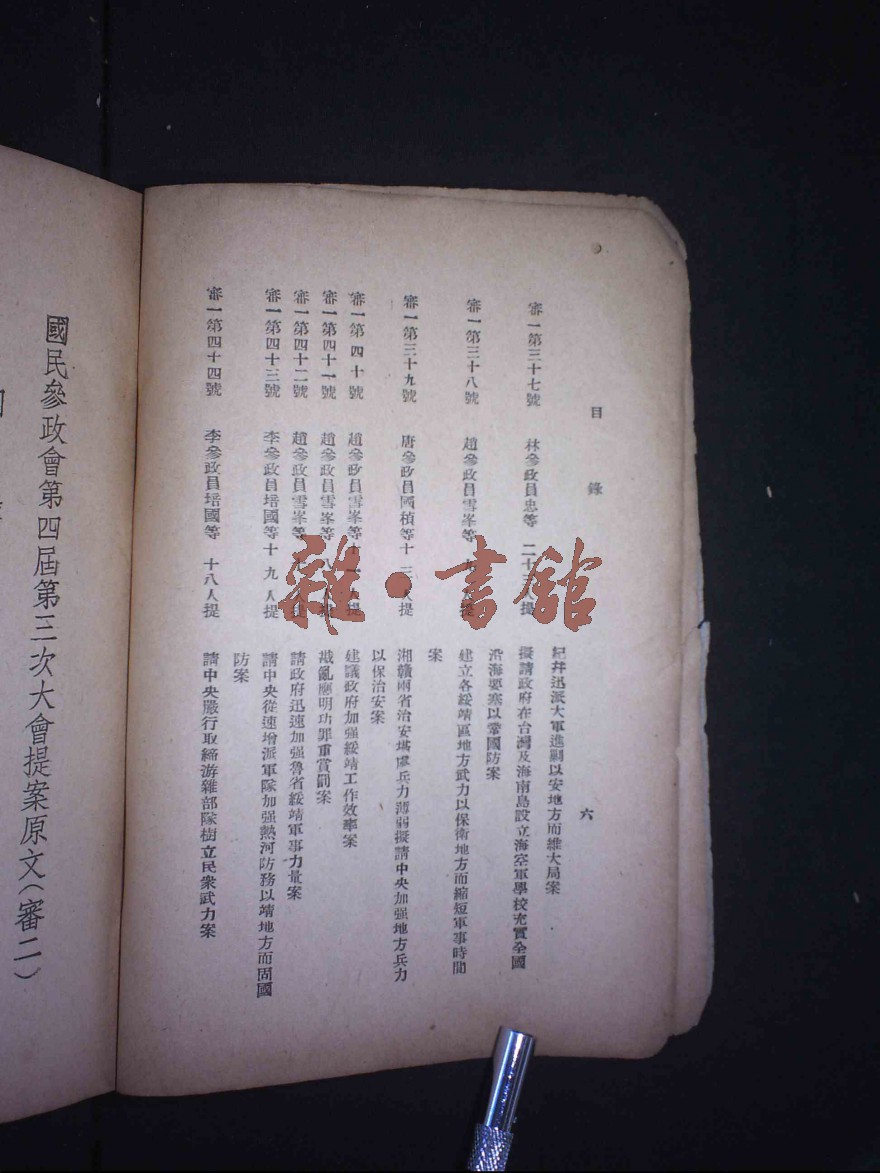 目錄
六
紀幷迅派大軍進剿以安地方而維大局案
審一第三十七號 林參政員忠等 二十三人提 擬請政府在台灣及海南島設立海空軍學校充實全國
沿海要塞以鞏國防案
審一第三十八號 趙參政員雪峯等 人提 建立各綏靖區地方武力以保衛地方而縮短軍事時間
案
審一第三十九號 唐參政員國楨等十三人提 湘贛兩省治安堪虞兵力薄弱擬請中央加强地方兵力
以保治安案
審一第四十號 趙參政員雪峯等十 人提 建議政府加强綏靖工作效率案
審一第四十一號 趙參政員雪峯等 八 提 戡亂應明功罪重賞罰案
審一第四十二號 趙參政員雪峯等 人提 請政府迅速加强魯省綏靖軍事力量案
審一第四十三號 李參政員培國等十九人提 請中央從速增派軍隊加强熱河防務以靖地方而固國
防案
審一第四十四號 李參政員培國等 十八人提 請中央嚴行取締游雜部隊樹立民衆武力案
國民參政會第四屆第三次大會提案原文(審二)
雜·書館